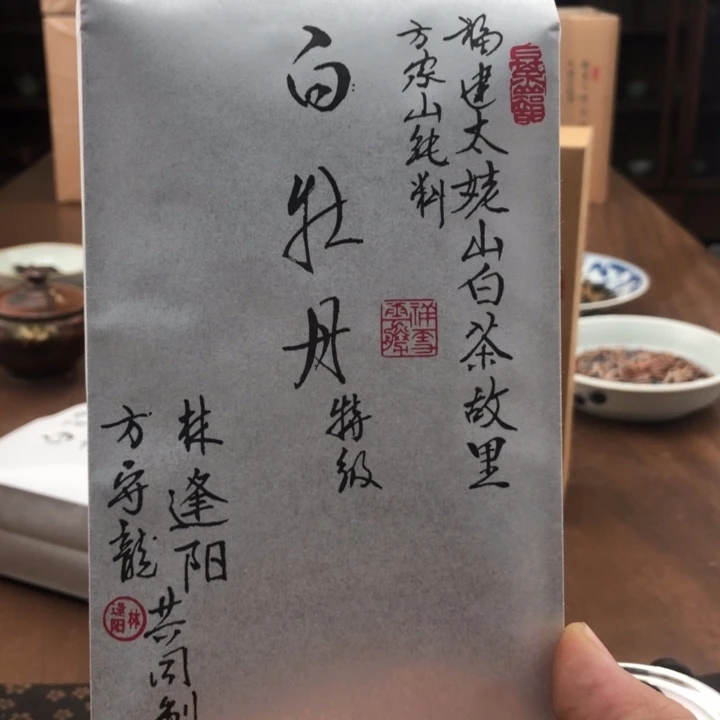 福建太姥山白茶故里
方家山純料
白牡丹
特級
林逢阳
方守龍
共同制
祥雪
林逢阳